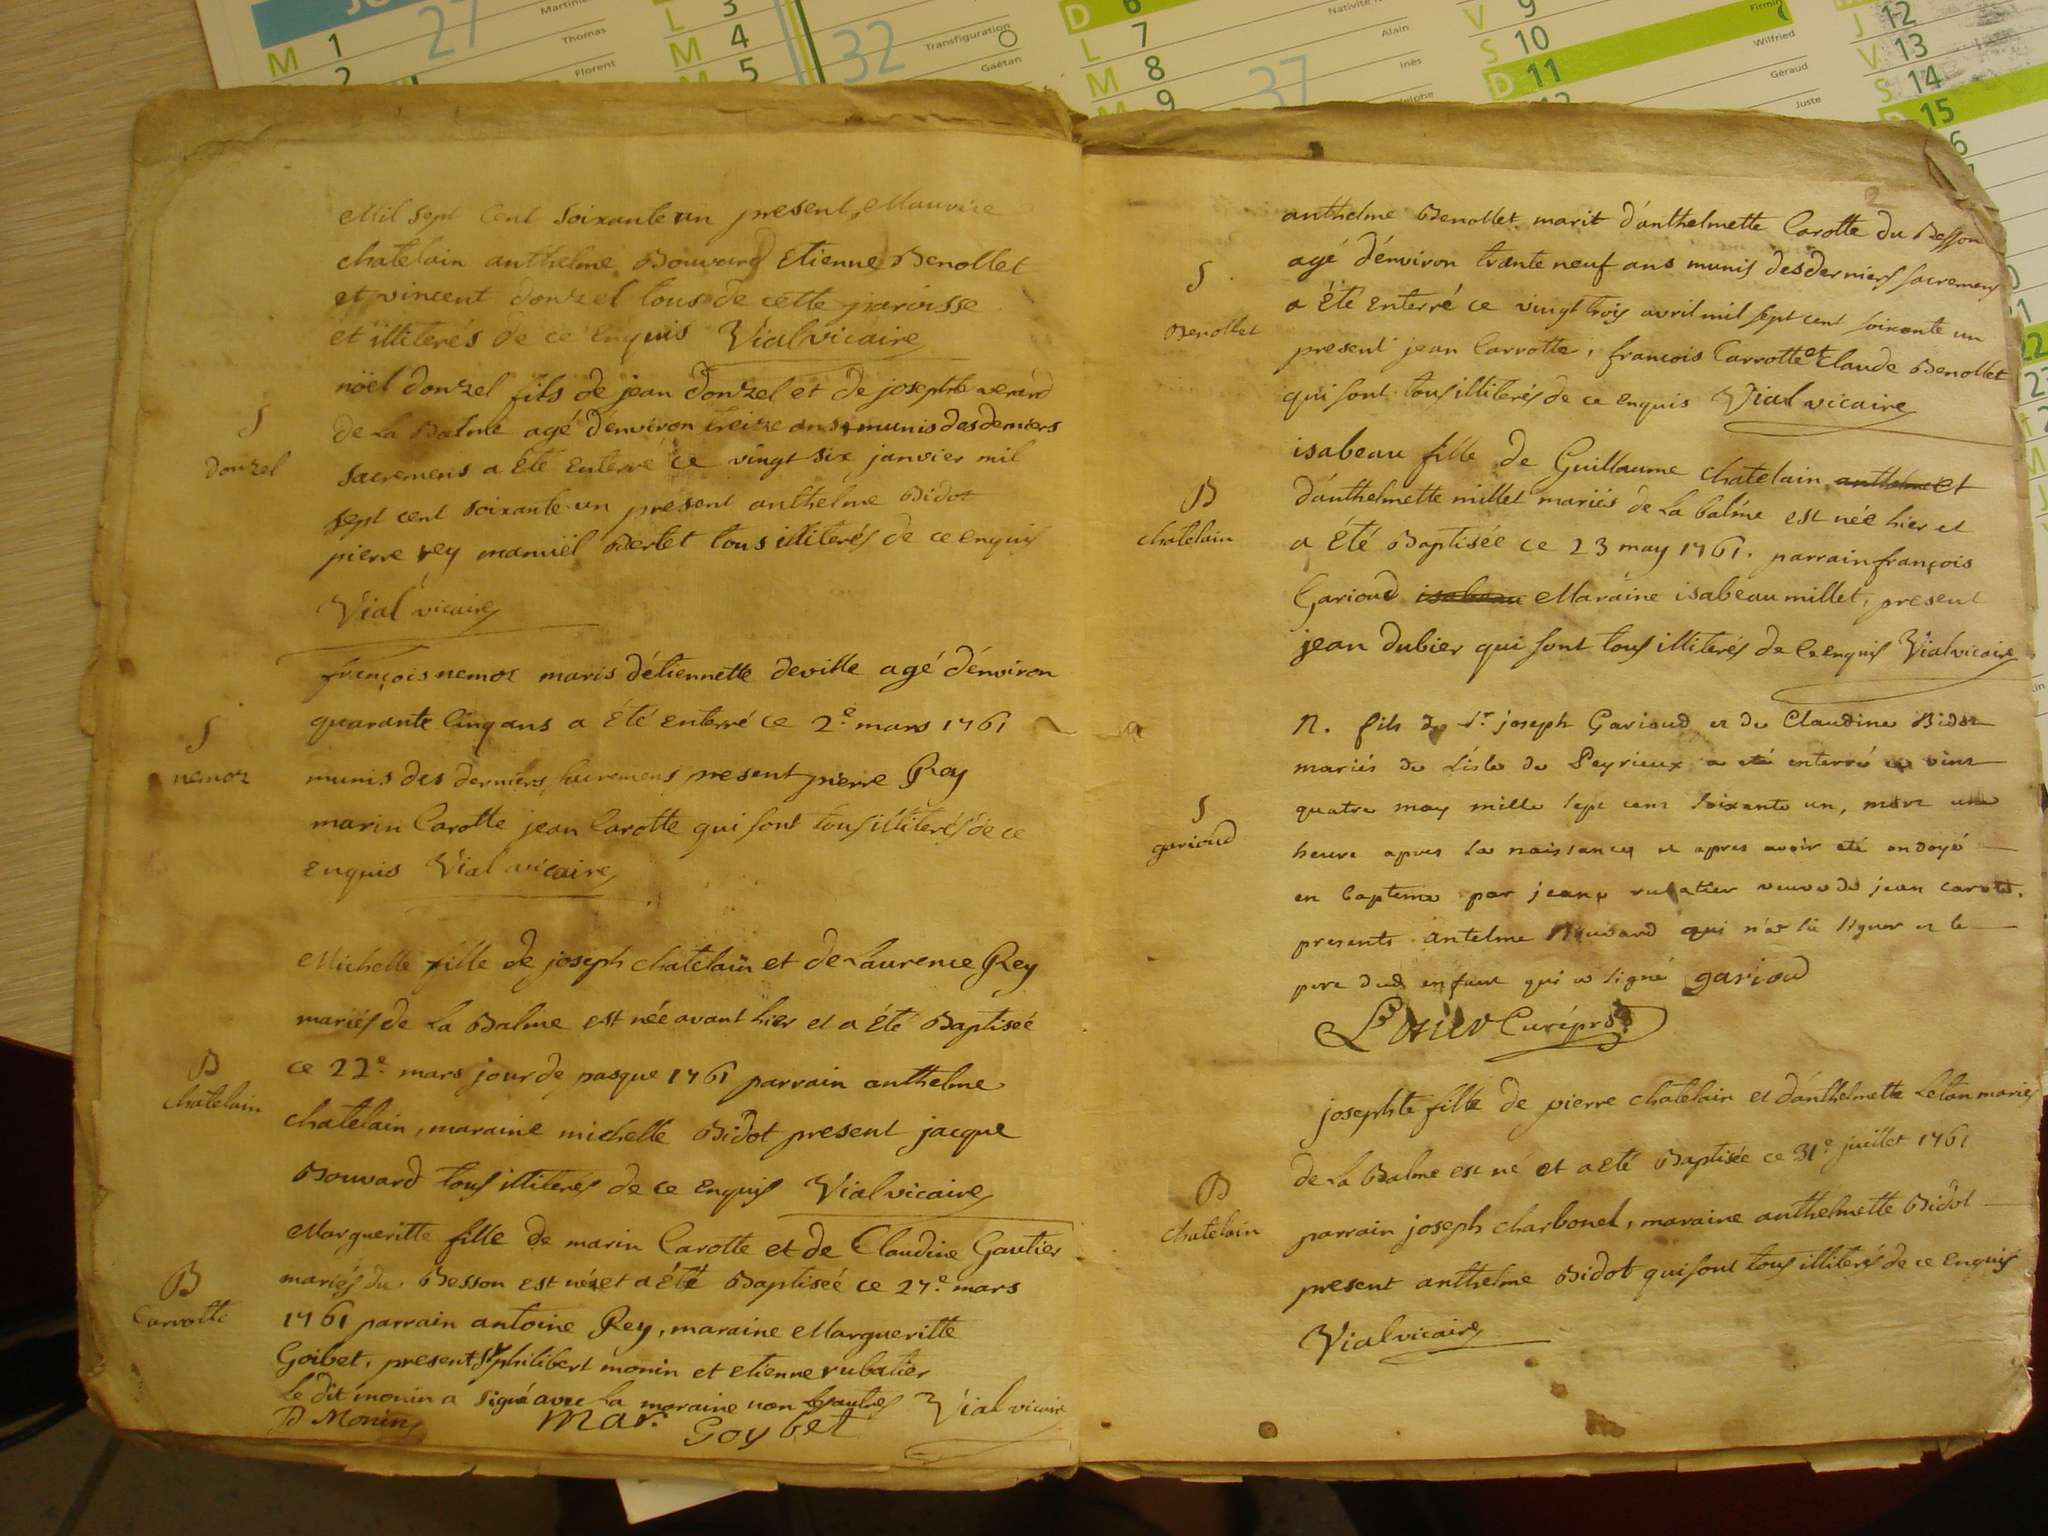 M 1 27 Martini
2 Thomas
Florent
L 3
M 4
M 5
32 Transfiguration
Gaétan
D 6
L 7
M 8
M 9
Alain
Inès
37
V 9
S 10
D 11
Firmin
Wilfried
Géraud
Juste
J 12
V 13
S 14
D 15
Mil sept cent soixante un present, Maurice
chatelain anthelme Bouvard Etienne Benollet
et vincent donzel tous de cette paroisse
et illiterés de ce enquis Vial vicaire
S
donzel
nöel donzel fils de jean donzel et de josephte verard
de La Balme agé d'environ treize ans munis des derniers
sacremens a Eté Enterré ce vingt six janvier mil
sept cent soixante un present anthelme Bidot
pierre rey manuël Berlet tous illiterés de ce enquis
Vial vicaire
S
nemoz
françois nemoz maris d'étiennette deville agé d'environ
quarante Cinq ans a Eté Enterré ce 2e mars 1761
munis des derniers sacremens present pierre Rey
marin Carotte jean Carotte qui sont tous illiterés de ce
Enquis Vial vicaire
B
chatelain
Michelle fille de joseph chatelain et de Laurence Rey
mariés de La Balme est née avant hier et a Eté Baptiseé
ce 22e mars jour de pasque 1761 parrain anthelme
chatelain, maraine michelle Bidot present jacque
Bouvard tous illiterés de ce Enquis Vial vicaire
B
Carrotte
Margueritte fille de marin Carotte et de Claudine Gautier
mariés du Besson est née et a Eté Baptiseé ce 27e mars
1761 parrain antoine Rey, maraine Margueritte
Goibet, present Sr philibert monin et etienne rubatier
Le dit monin a signé avec La maraine non les autres Vial vicaire
P Monin mar. Goybet
2
S
Benollet
anthelme Benollet marit d'anthelmette Carotte du Besson
agé d'environ trante neuf ans munis des derniers sacremens
a Eté Enterré ce vingt trois avril mil sept cent soixante un
present jean Carrotte, françois Carrotte et Claude Benollet
qui sont tous illiterés de ce Enquis Vial vicaire
B
chatelain
isabeau fille de Guillaume chatelain et
d'anthelmette millet mariés de La balme est née hier et
a Eté Baptisée ce 23 may 1761. parrain françois
Garioud isabeau Maraine isabeau millet, present
jean dubier qui sont tous illiterés de Ce Enquis Vial vicaire
S
garioud
N. fils de Sr joseph Garioud et de Claudine Bidot
mariés de Lisle de Peyrieux a eté enterré ce vint
quatre may mille sept cent soixante un, mort une
heure apres sa naissance et apres avoir eté ondoyé
en bapteme par jeane rubatier veuve de jean carote.
presents antelme Bouvard qui n'a sû signer et le
pere dud. enfant qui a signé gariod
Curé
B
chatelain
josephte fille de pierre chatelain et d'anthelmette Letan mariés
de La Balme est né et a Eté Baptisée ce 31e juillet 1761
parrain joseph charbonet, maraine anthelmette Bidot
present anthelme Bidot qui sont tous illiterés de ce Enquis
Vial vicaire